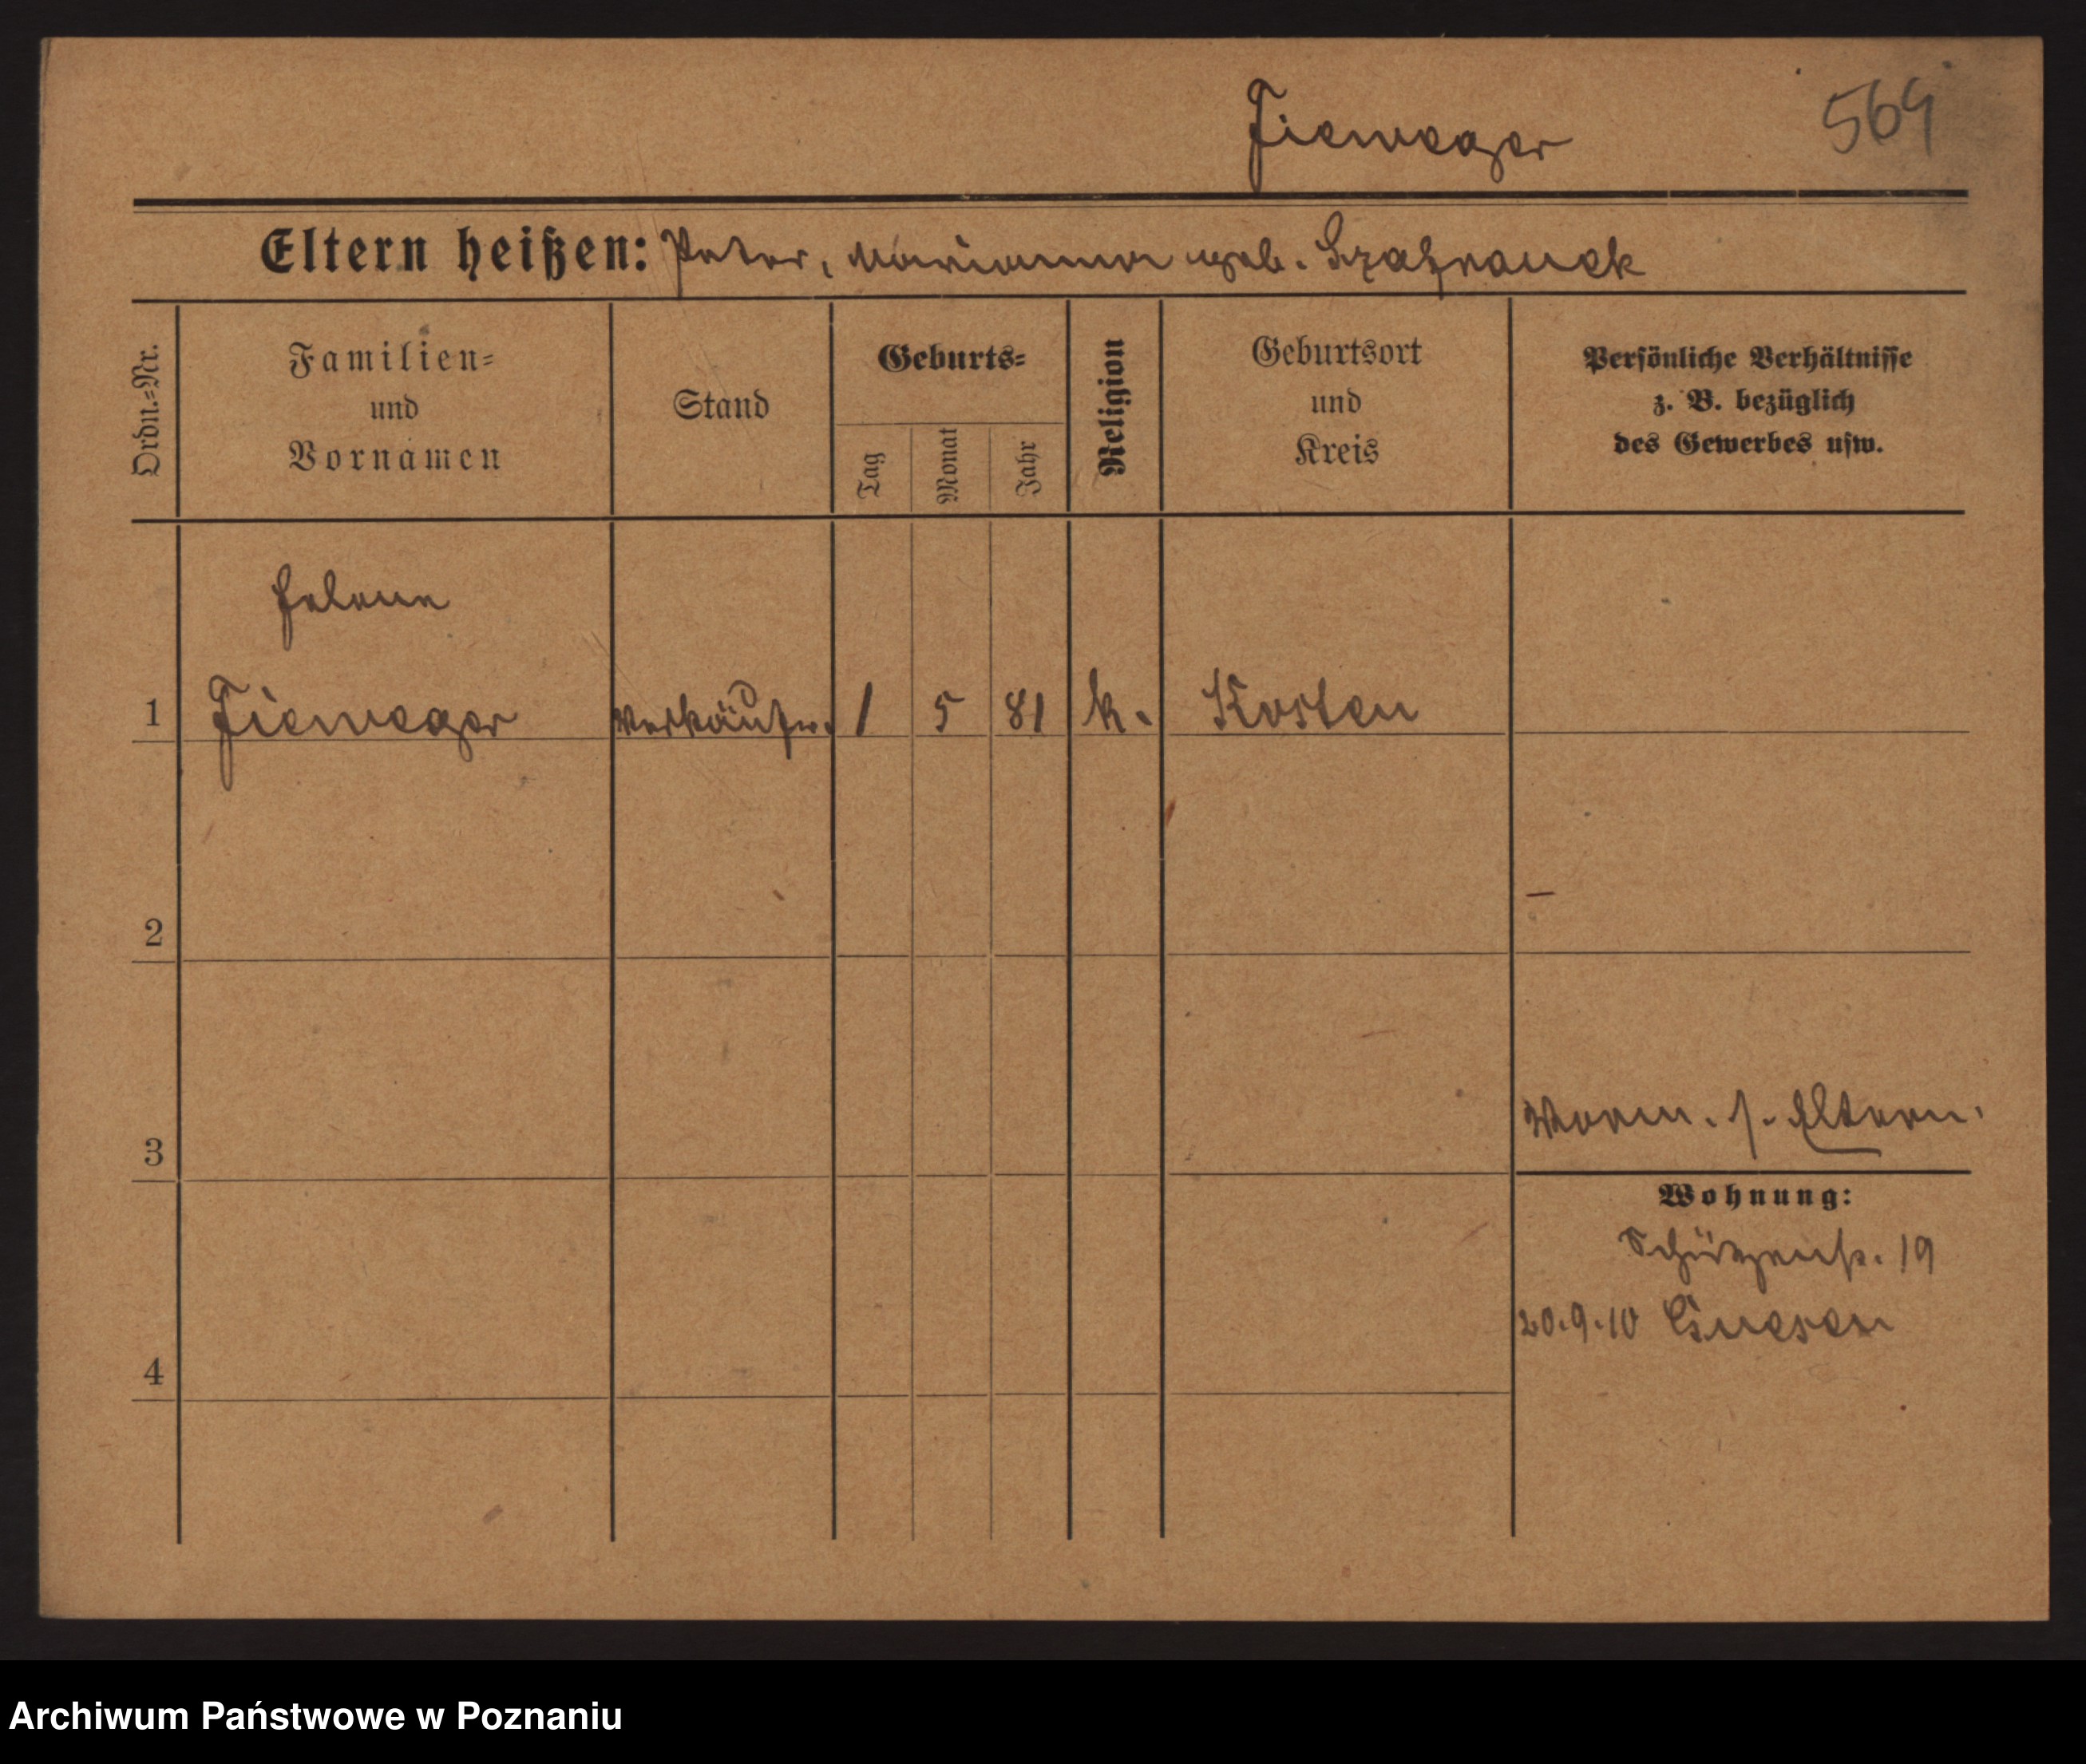 Fieweger
569
Eltern heißen: Peter, Marianna geb. Szafranek
Ordn.-Nr.
Familien-
und
Vornamen
Stand
Geburts-
Tag
Monat
Jahr
Religion
Geburtsort
und
Kreis
Persönliche Verhältnisse
z. B. bezüglich
des Gewerbes usw.
Helene
1 Fieweger Verkäufer. 1 5 81 k. Kosten
2
3
Worm. s. Eltern.
Wohnung:
Schützenstr. 19
20.9.10 Gnesen
4
Archiwum Państwowe w Poznaniu